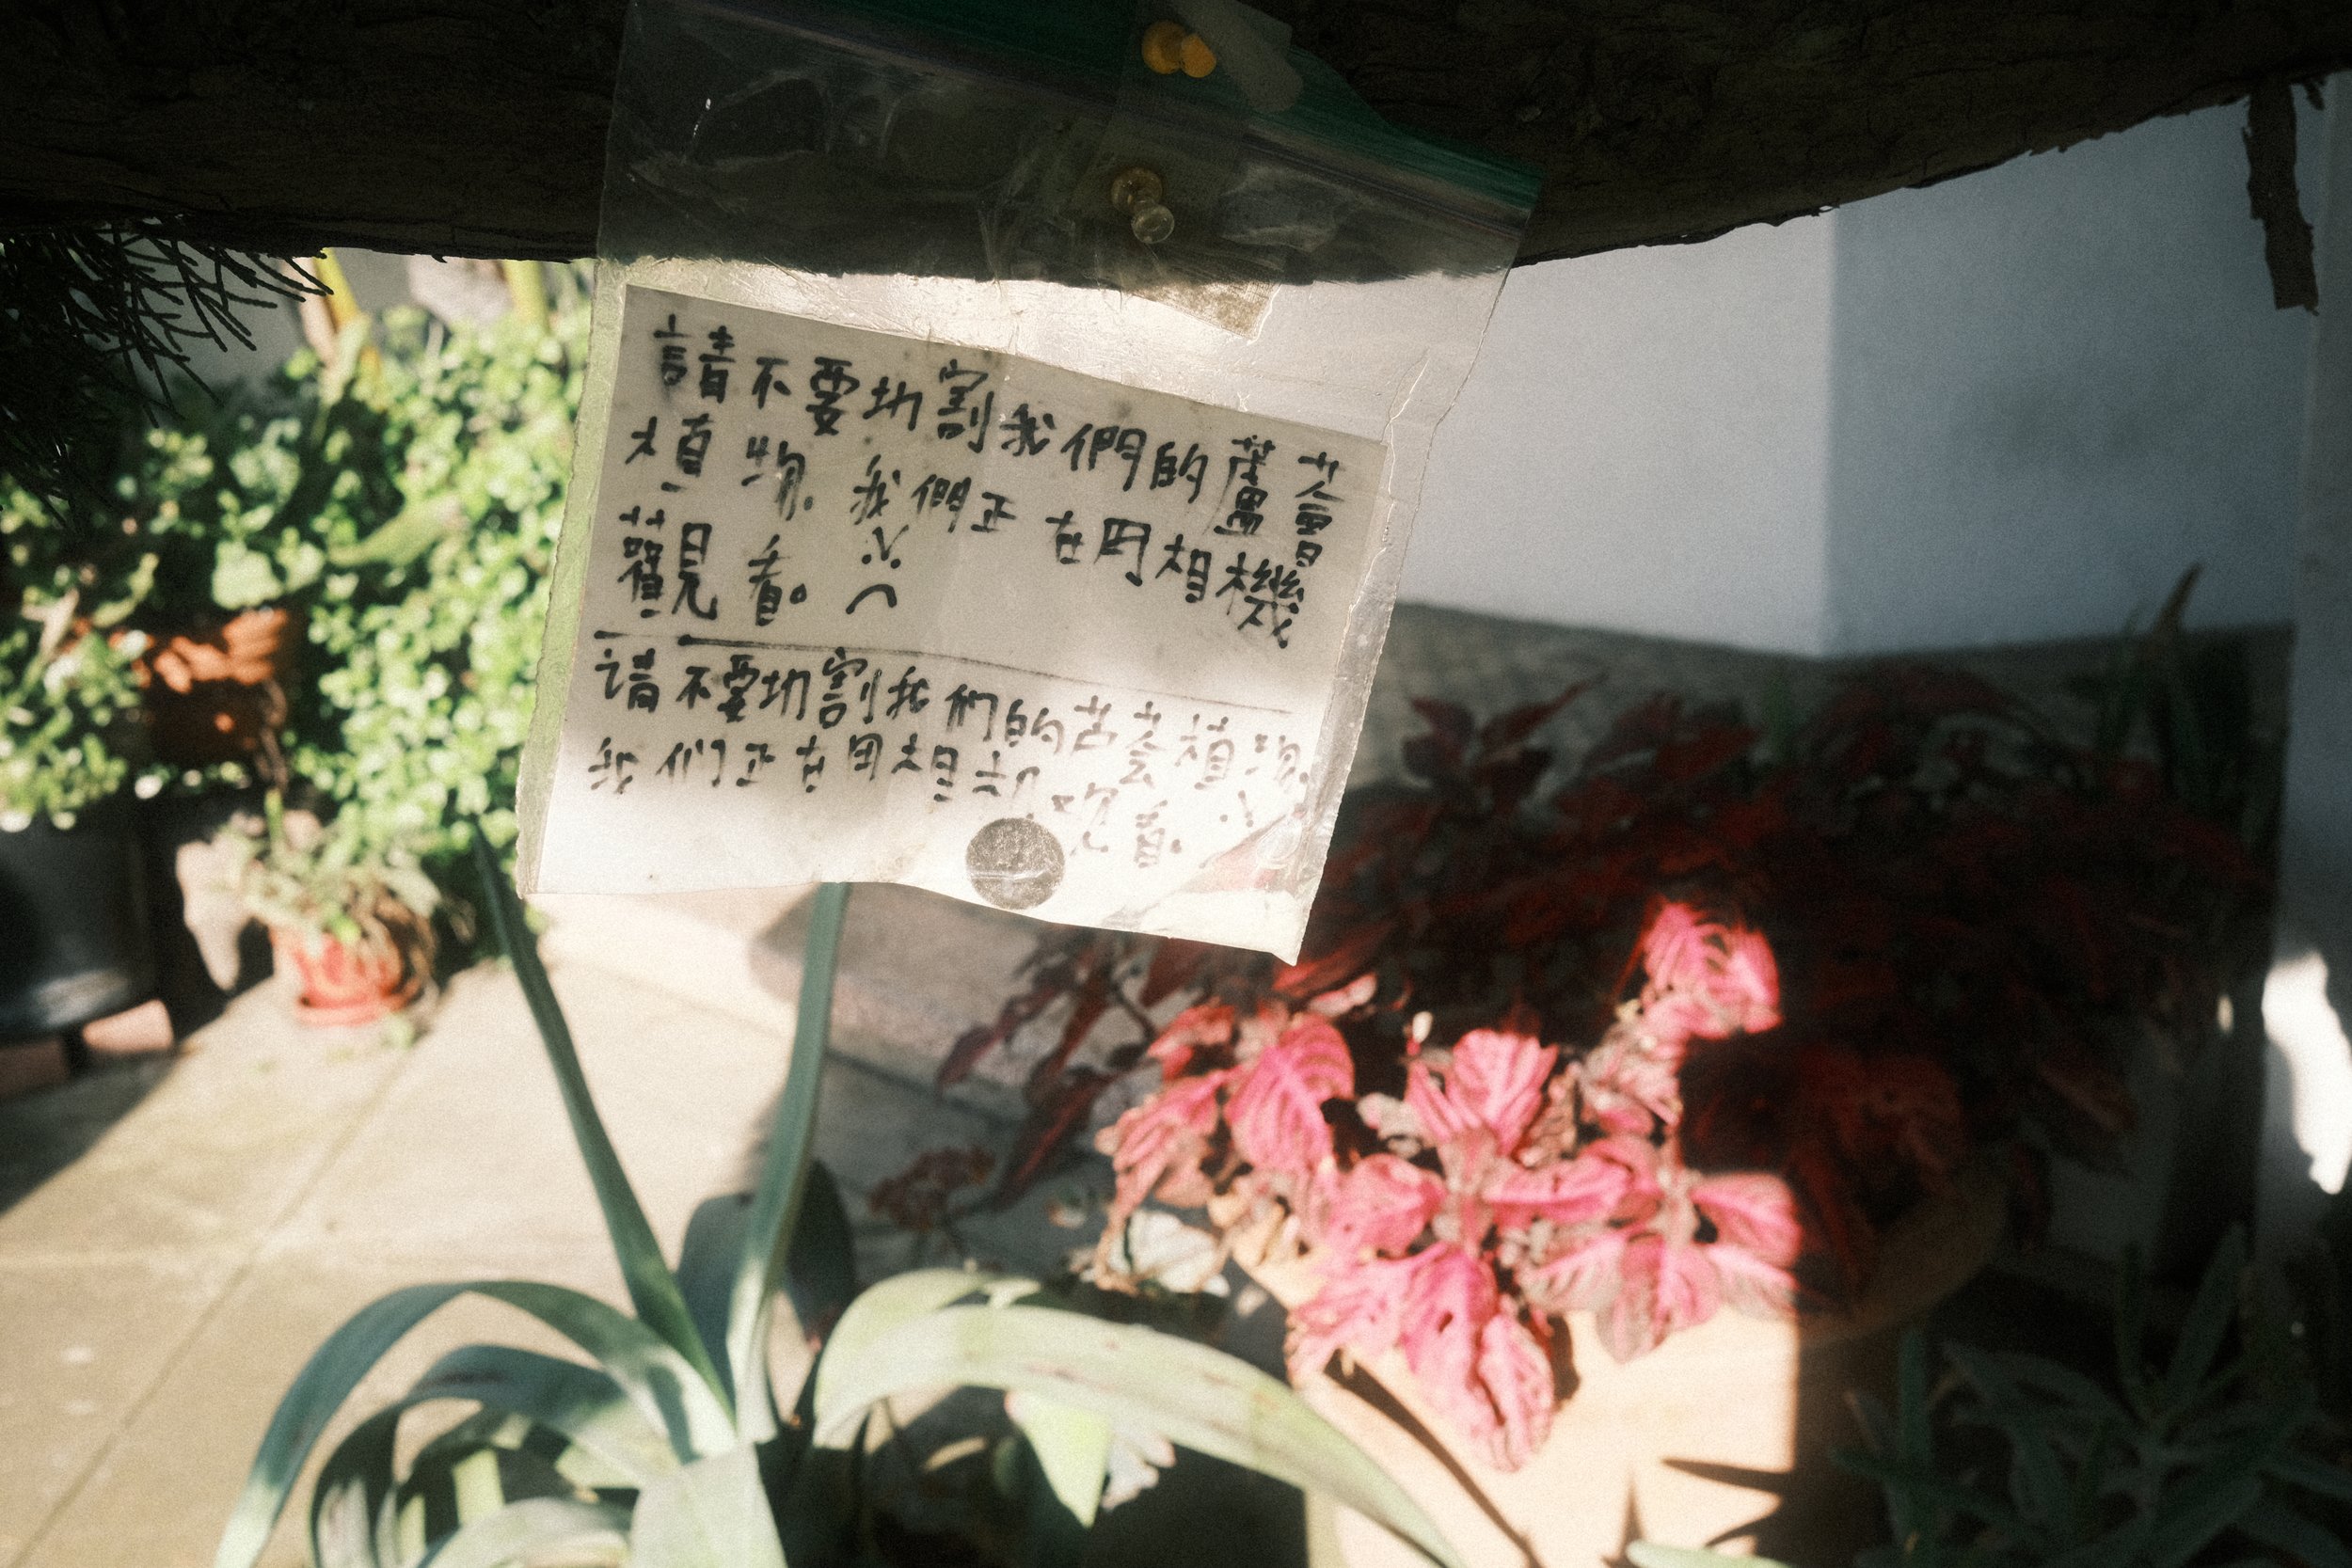 請不要切割我們的蘆薈
植物。我們正在用相機
觀看。
请不要切割我们的芦荟植物。
我们正在用相机观看。